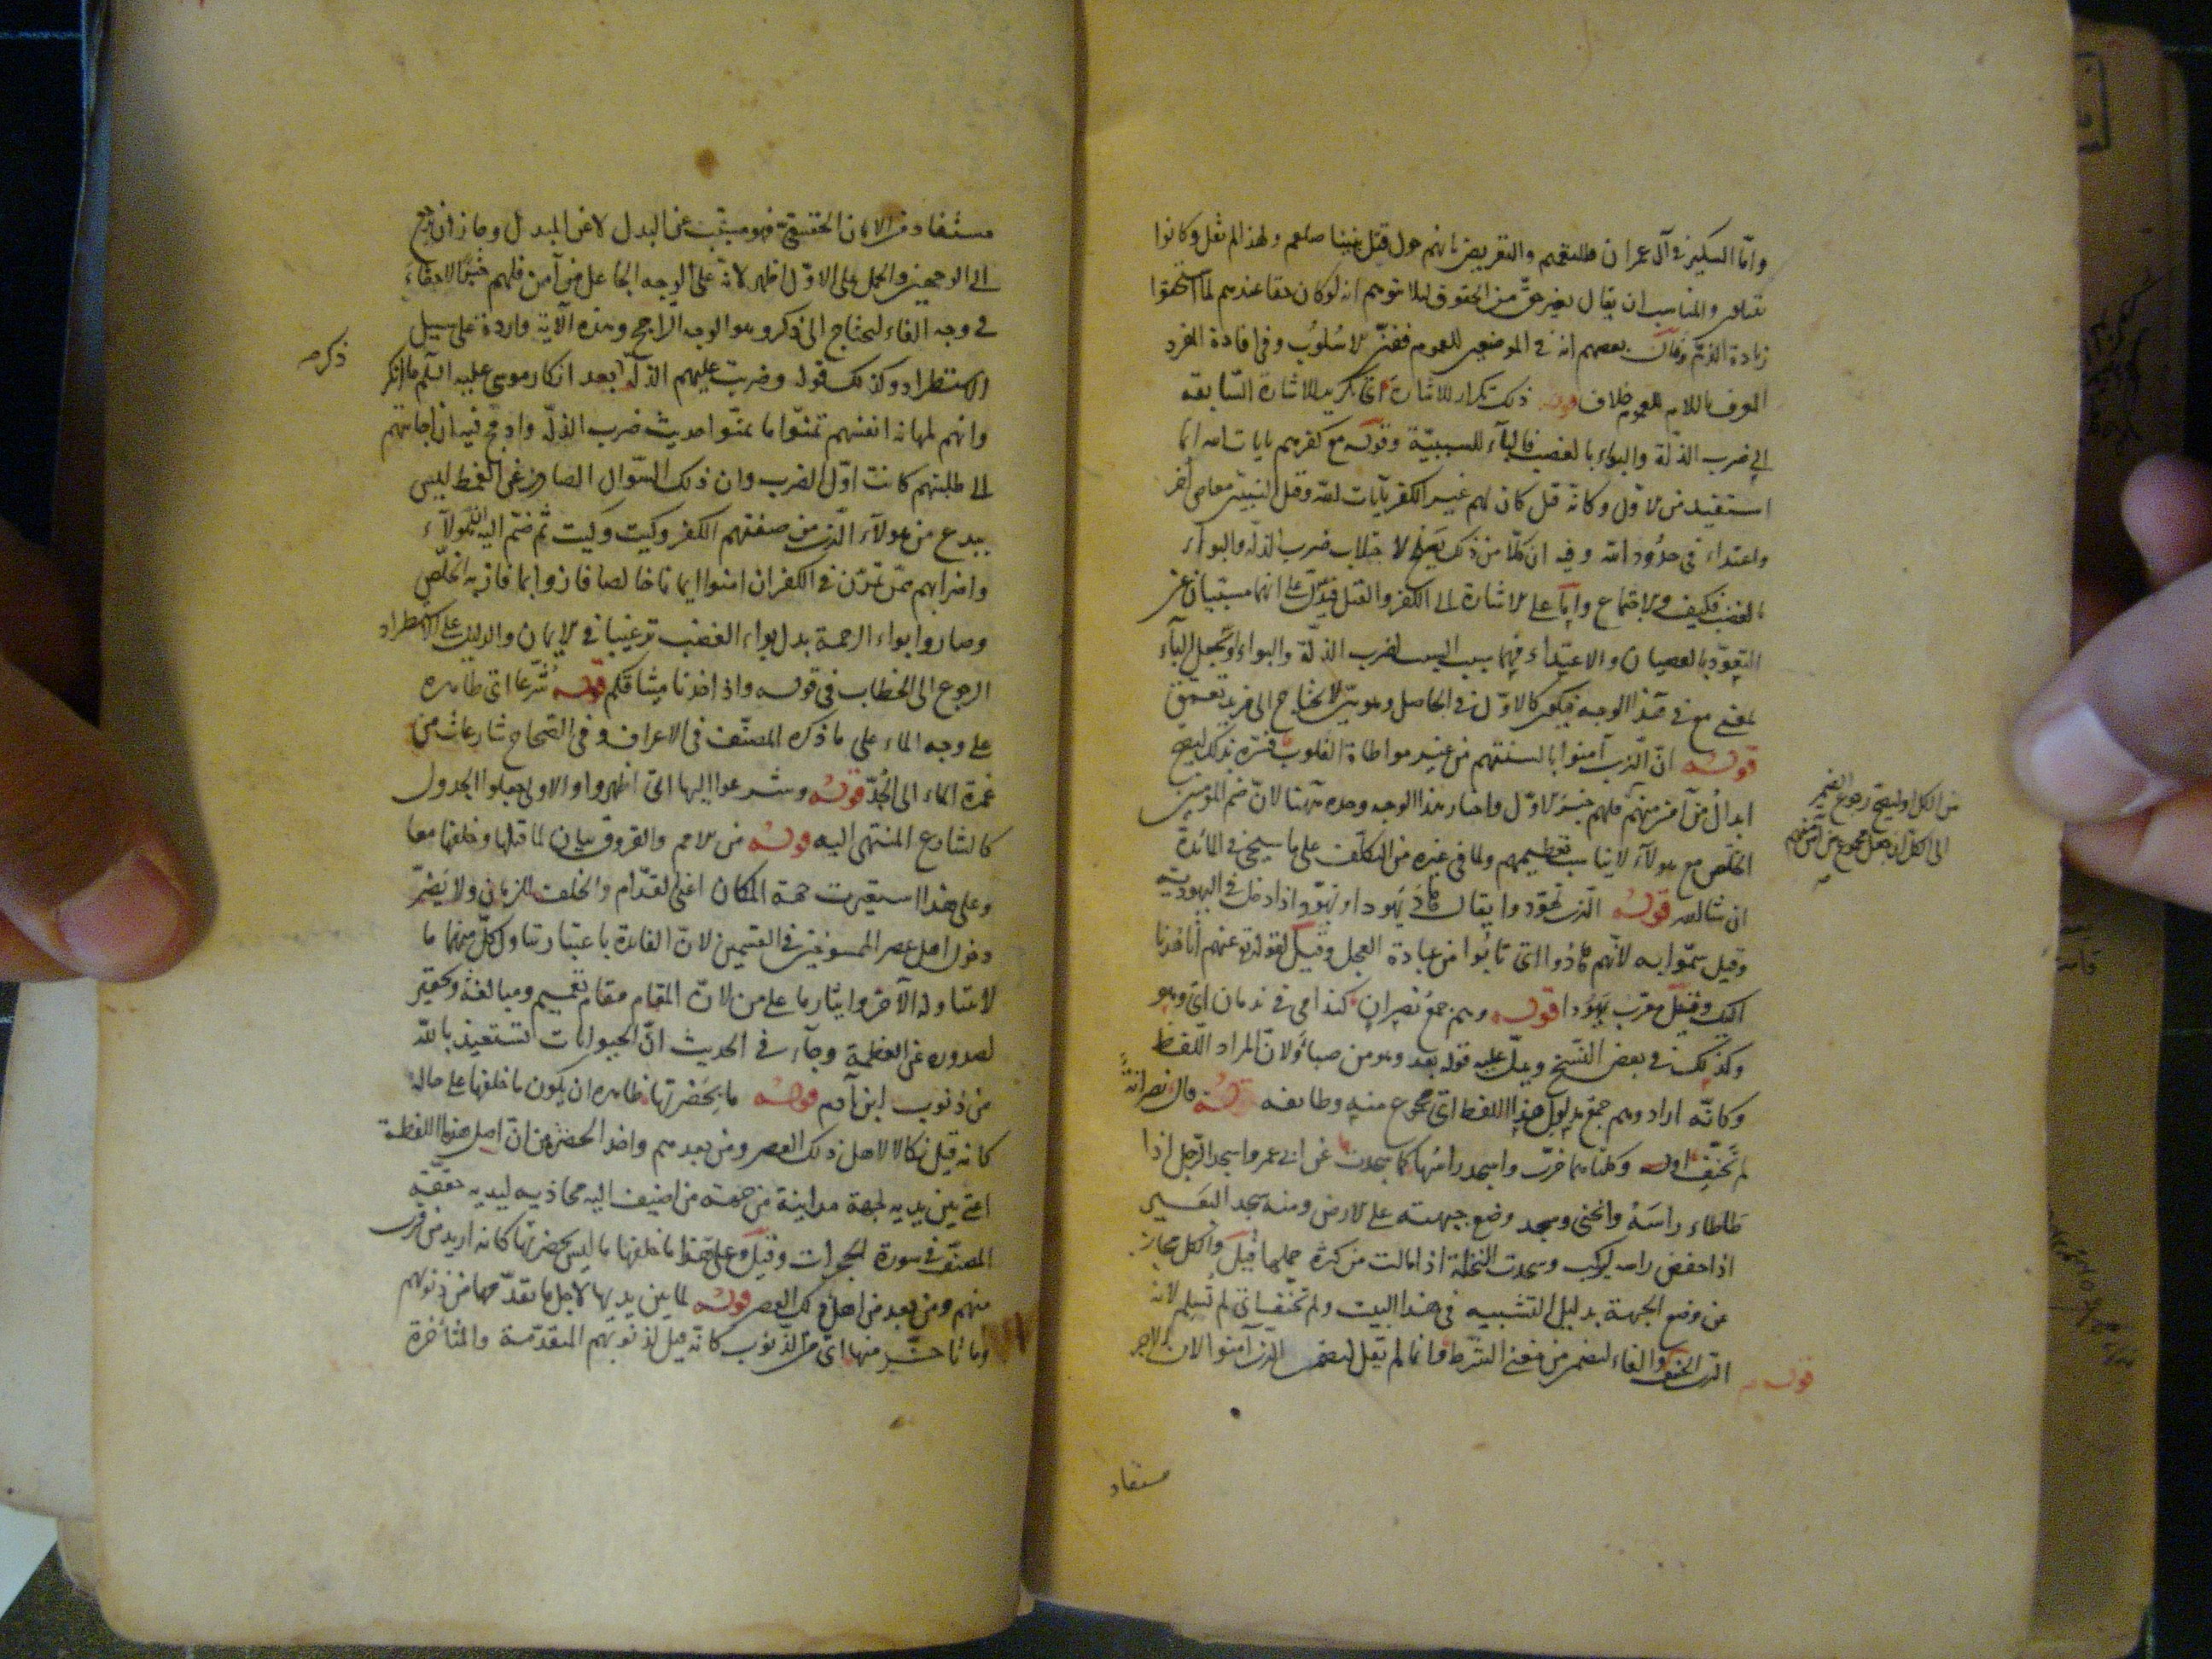 واما التنكير في آل عمران فلتعميم والتعريض بانهم حول قتل نبينا صلعم ولهذا لم يقل وكانوا
يقتلون والمناسب ان يقال بغير حق من الحقوق لئلا يتوهم انه لو كان حقا عندهم لما استحقوا
زيادة الذم وقال بعضهم انه في الموضعين للعموم ففنّن الاسلوب وفي افادة المفرد
المعرف باللام العموم خلاف قوله ذلك تكرار للاشارة اي تكرير للاشارة السابقة
الى ضرب الذلة والبواء بالغضب فالباء للسببية وقوله مع كفرهم بايات الله انما
استفيد من الاول وكانه قيل كان لهم غير الكفر بآيات الله وقتل النبيين معاصي أخر
واعتداء في حدود الله وفيه ان كلّا من ذلك يصلح لاجتلاب ضرب الذلة والبواء
بالغضب فكيف في الاجتماع واما على الاشارة الى الكفر والقتل فيدل على انهما مسببان عن
التعود بالعصيان والاعتداء فهما سبب السبب لضرب الذلة والبواء او تجعل الباء
بمعنى مع في هذا الوجه فيكون كالاول في الحاصل وهو بيّن لا يحتاج الى مزيد تعمق
قوله ان الذين آمنوا بالسنتهم من غير مواطاة القلوب فسّره بذلك ليصح
ابدال من آمن منهم فلهم خبر الاول واختار هذا الوجه وحده ههنا لان ضم المؤمنين
الخلّص مع هولاء لا يناسب تعظيمهم ولما في غيره من التكلف على ما سيجئ في المائدة
ان شاء الله قوله الذين تهوّدوا يقال هاد يهود او تهوّد اذا دخل في اليهودية
وقيل سموا به لانهم هادوا اي تابوا من عبادة العجل وقيل لقوله تع عنهم انا هدنا
اليك وقيل معرّب يهودا قوله وهم جمع نصران كندامى في ندمان اي وهو
وكذلك في بعض النسخ ويدل عليه قوله بعد وهو من صبأ ولان المراد اللفظ
وكانه اراد وهم جمع مدلول هذا اللفظ اي مجموع منه وطايفة قوله قال نصرانة
لم تحنّف اوله وكلتاهما خرّت واسجد راسها كما سجدت عن ابي عمرو اسجد الرجل اذا
طاطاء راسه وانحنى وسجد وضع جبهته على الارض ومنه سجد البعير
اذا خفض راسه ليركب وسجدت النخلة اذا مالت من كثرة حملها قيل والكل مجاز
عن وضع الجبهة بدليل التشبيه في هذا البيت ولم تحنّف اي لم تسلم لانه
الدين الحنيف قوله والفاء لتضمن من معنى الشرط وانما لم يقل لتضمن الذين آمنوا لان الاجر
من الكل او ليصح رجوع الضمير
الى الكل لان جعل مجموع من آمن منهم
مستفاد
مستفاد من الايمان الحقيقي فهو مسبّب عن البدل لا عن المبدل وجاز ان يرجع
الى الوجهين والحمل على الاول اظهر لانه على الوجه الجاعل من آمن فلهم خبرا لا خفاء
في وجه الفاء ليحتاج الى ذكر وهو الوجه الراجح وهذه الآية واردة على سبيل
الاستطراد وكذلك قوله وضربت عليهم الذلة بعد انكار موسى عليه السلم ما انكر
ذكره
وانهم لمهانة انفسهم تمنّوا ما تمنّوا حديث ضرب الذلة وادمج فيه ان اجابتهم
الى طلبتهم كانت اول الضرب وان ذلك السؤال الصادر عن الغمط ليس
ببدع من هولاء الذين من صفتهم الكفر وكيت وكيت ثم ضم اليه ان هولاء
واضرابهم ممن تمرّن في الكفر ان امنوا ايمانا خالصا فازوا بما فاز به الخلّص
وصاروا بواء الرحمة بدل بواء الغضب ترغيبا في الايمان والدليل على الاستطراد
الرجوع الى الخطاب في قوله واذ اخذنا ميثاقكم قوله شُرّعا اي ظاهرة
على وجه الماء على ما ذكره المصنف في الاعراف وفي الصحاح شارعات من
غمرة الماء الى الجُدّ قوله وشرعوا اليها اي اظهروا والاولى جعلوا الجدول
كالشارع المنتهى اليه قوله من الامم والقرون بيان لما قبلها وخلفها معا
وعلى هذا استعيرت جهة المكان اعني القدّام والخلف للزمان ولا يضرّ
دخول اهل عصر الممسوخين في القسمين لان الفائدة باعتبار تناول كل منهما ما
لا يتناوله الآخر وايثار ما على من لان المقام مقام تعميم ومبالغة وتحقير
لصدوره عن العظمة وجاء في الحديث انّ الحيوانات لتستعيذ بالله
من ذنوب ابن آدم قوله ما بحضرتها ظاهره ان يكون ما خلفها على حاله
كانه قيل نكالا لاهل ذلك العصر ومن بعدهم واخذ الحضور من ان اصل هذه اللفظة
اعني بين يديه لجهة مدانية من جهة من اضيف اليه محاذية ليديه حققه
المصنف في سورة الحجرات وقيل وعلى هذا ما خلفها ما ليس بحضرتها كانه اريد من قرب
منهم ومن بعد من اهل ذلك العصر قوله لما بين يديها لاجل ما تقدّمها من ذنوبهم
وما تأخّر منها اي من الذنوب كانه قيل لذنوبهم المتقدمة والمتأخرة